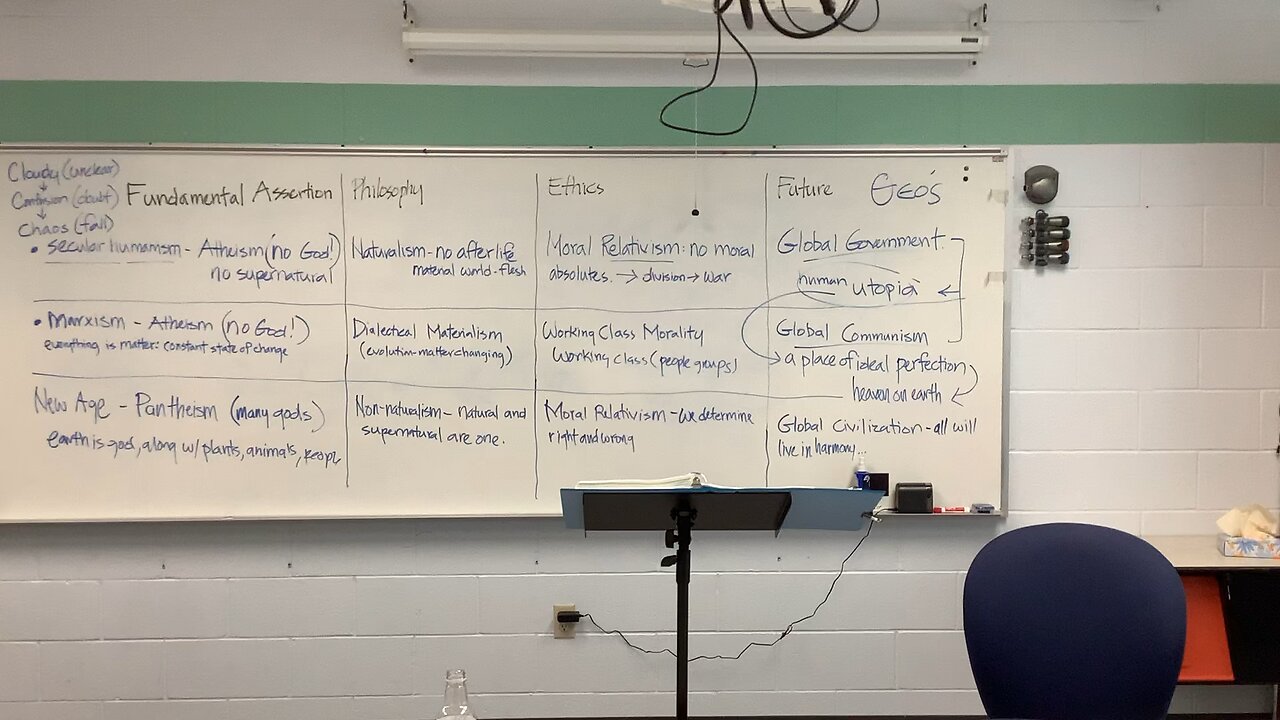 Cloudy (unclear)
Confusion (doubt)
Chaos (fall)
Fundamental Assertion
Philosophy
Ethics
Future
• Secular humanism - Atheism (no God!)
no supernatural
Naturalism - no afterlife
material world - flesh
Moral Relativism: no moral
absolutes. → division → war
Global Government
human utopia
• Marxism - Atheism (no God!)
everything is matter: constant state of change
Dialectical Materialism
(evolution-matter changing)
Working Class Morality
Working class (people groups)
Global Communism
a place of ideal perfection
heaven on earth
New Age - Pantheism (many gods)
earth is god, along w/ plants, animals, people
Non-naturalism - natural and
supernatural are one.
Moral Relativism - we determine
right and wrong
Global Civilization - all will
live in harmony...